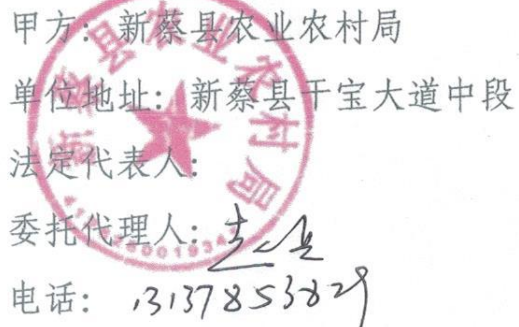 甲方：新蔡县农业农村局
单位地址：新蔡县干宝大道中段
法定代表人：
委托代理人：
电话：13137853829
新蔡县农业农村局